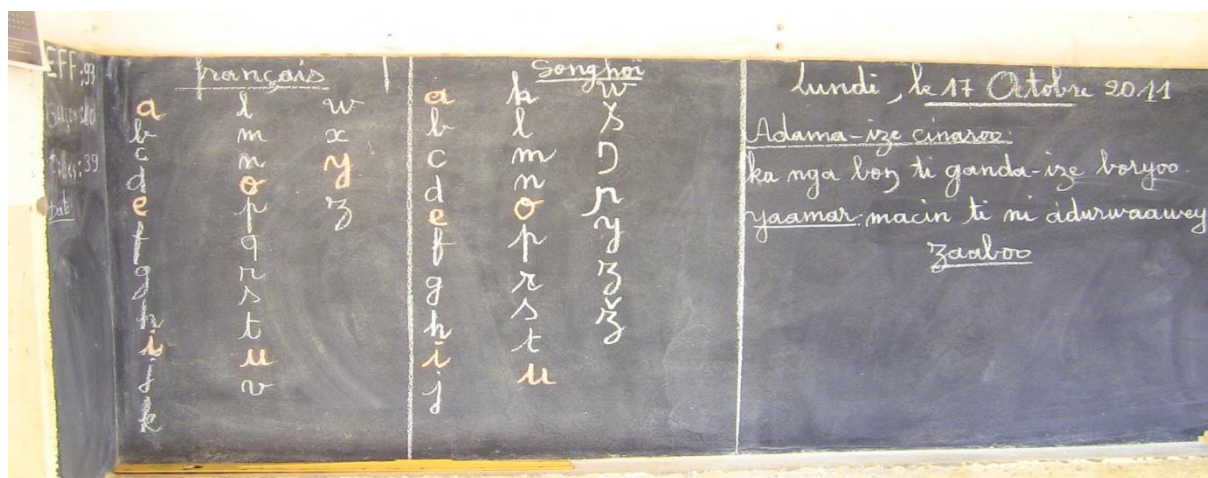 EFF:
Filles: 39
Date:
français
a
b
c
d
e
f
g
h
i
j
k
l
m
n
o
p
q
r
s
t
u
v
w
x
y
z
Songhoï
a
b
c
d
e
f
g
h
i
j
k
l
m
n
o
p
r
s
t
u
w
š
ŋ
ɲ
y
z
ž
Lundi, le 17 Octobre 2011
Adama-ize cinaroo.
ka nga boŋ ti ganda-ize boryoo.
yaamar: macin ti ni ddurwaawey
zaaboo